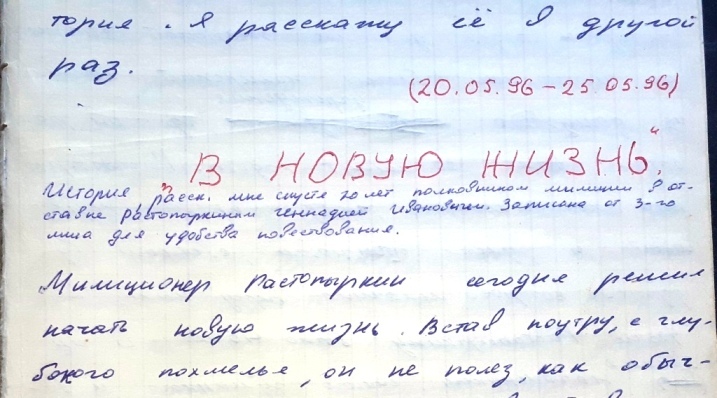 тория. Я расскажу её в другой
раз.
(20.05.96 – 25.05.96)
"В НОВУЮ ЖИЗНЬ."
История расск. мне спустя 20 лет полковником милиции в от-
ставке Растопыркиным Геннадией Ивановичем. Записана от 3-го
лица для удобства повествования.
Милиционер Растопыркин сегодня решил
начать новую жизнь. Встав поутру, с глу-
бокого похмелья, он не полез, как обыч-